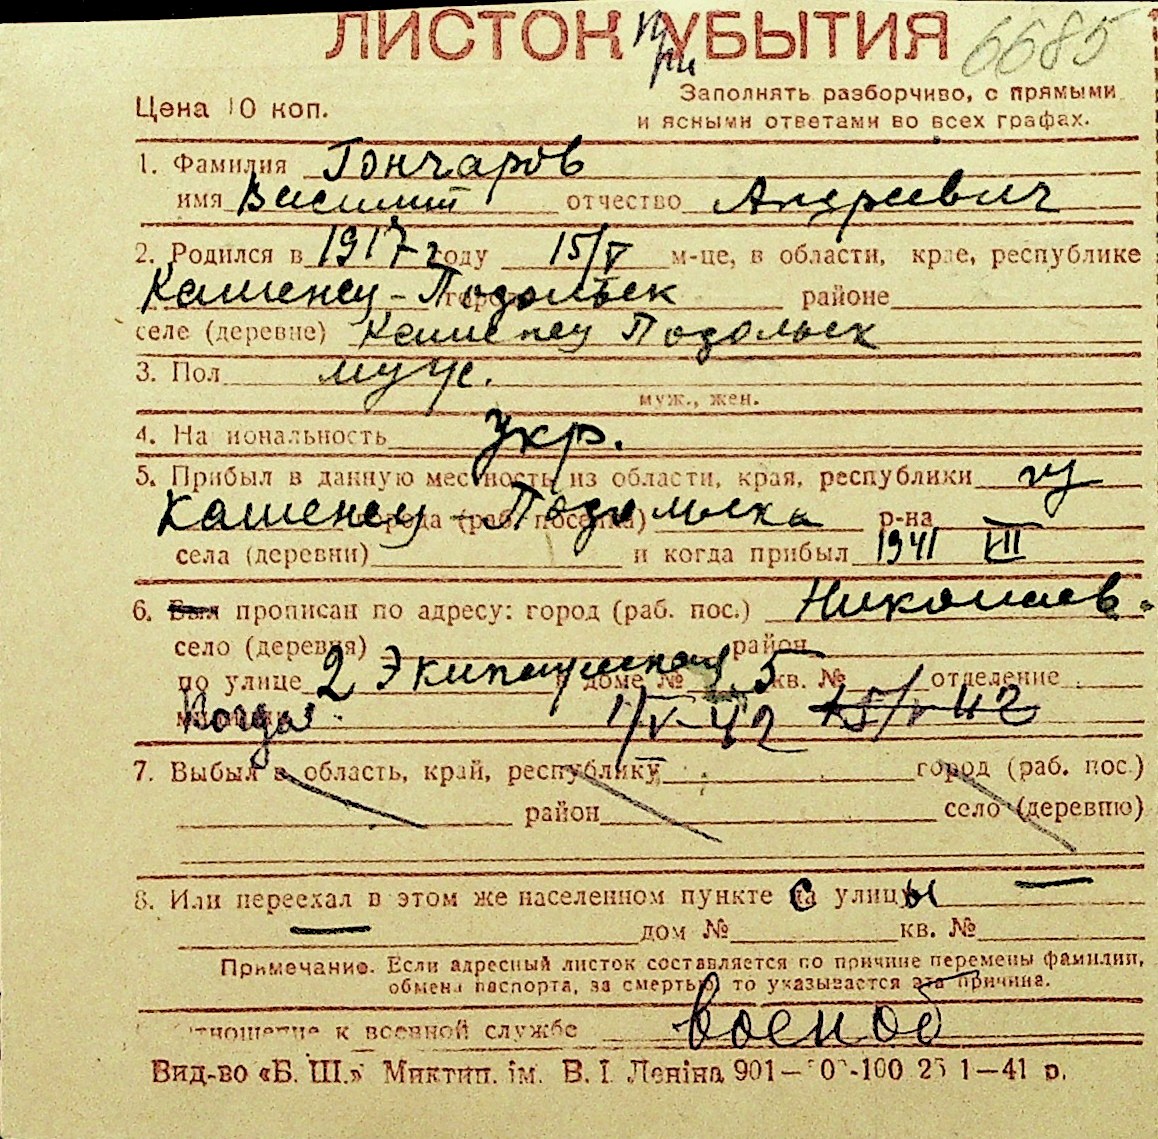 ЛИСТОК УБЫТИЯ При 6685
Цена 10 коп.
Заполнять разборчиво, с прямыми
и ясными ответами во всех графах.
1. Фамилия Гончаров
имя Василий отчество Андреевич
2. Родился в 1917 г году 15/V м-це, в области, крае, республике
Каменец-Подольск районе
селе (деревне) Каменец Подольск
3. Пол муж.
муж., жен.
4. Национальность Укр.
5. Прибыл в данную местность из области, края, республики из
Каменец-Подольска города (раб. поселка) р-на
села (деревни) и когда прибыл 1941 VII
6. Был прописан по адресу: город (раб. пос.) Николаев.
село (деревня) район
по улице 2 Экипажеская в доме № 5 кв. № отделение
Когда: 1/V-42 15/V 42
7. Выбыл в область, край, республику город (раб. пос.)
район село (деревню)
8. Или переехал в этом же населенном пункте с улицы
дом № кв. №
Примечание. Если адресный листок составляется по причине перемены фамилии,
обмена паспорта, за смертью, то указывается эта причина.
отношение к военной службе военоб
Вид-во «Б. Ш.» Миктип. ім. В. І. Леніна 901— 100 25 1—41 р.